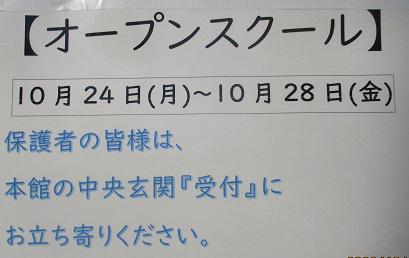 【オープンスクール】
10月24日(月)～10月28日(金)
保護者の皆様は、
本館の中央玄関『受付』に
お立ち寄りください。